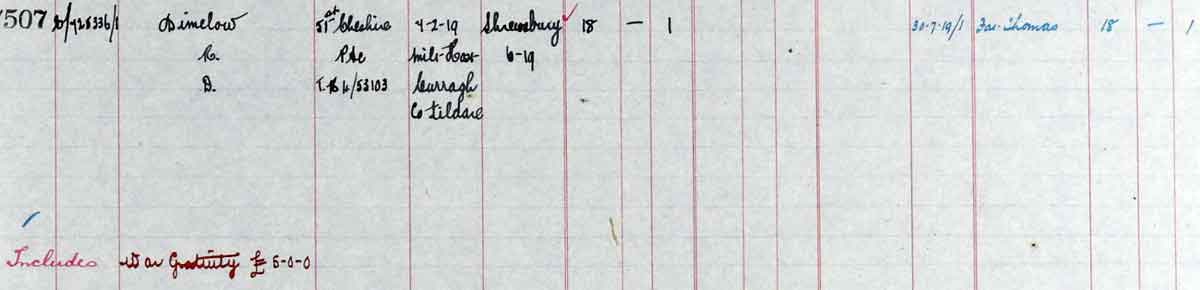 507 E/425336/1 Dimelow 51st Cheshire 4-2-19 Shrewsbury 18 — 1 30-7-19/1 Fa: Thomas 18 — 1
R. Pte Mily. Hos. 6-19
D. T.R.4/53103 Curragh
Co Kildare
Includes War Gratuity £5-0-0